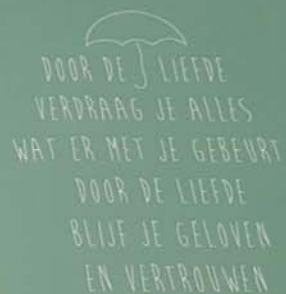 DOOR DE LIEFDE
VERDRAAG JE ALLES
WAT ER MET JE GEBEURT
DOOR DE LIEFDE
BLIJF JE GELOVEN
EN VERTROUWEN